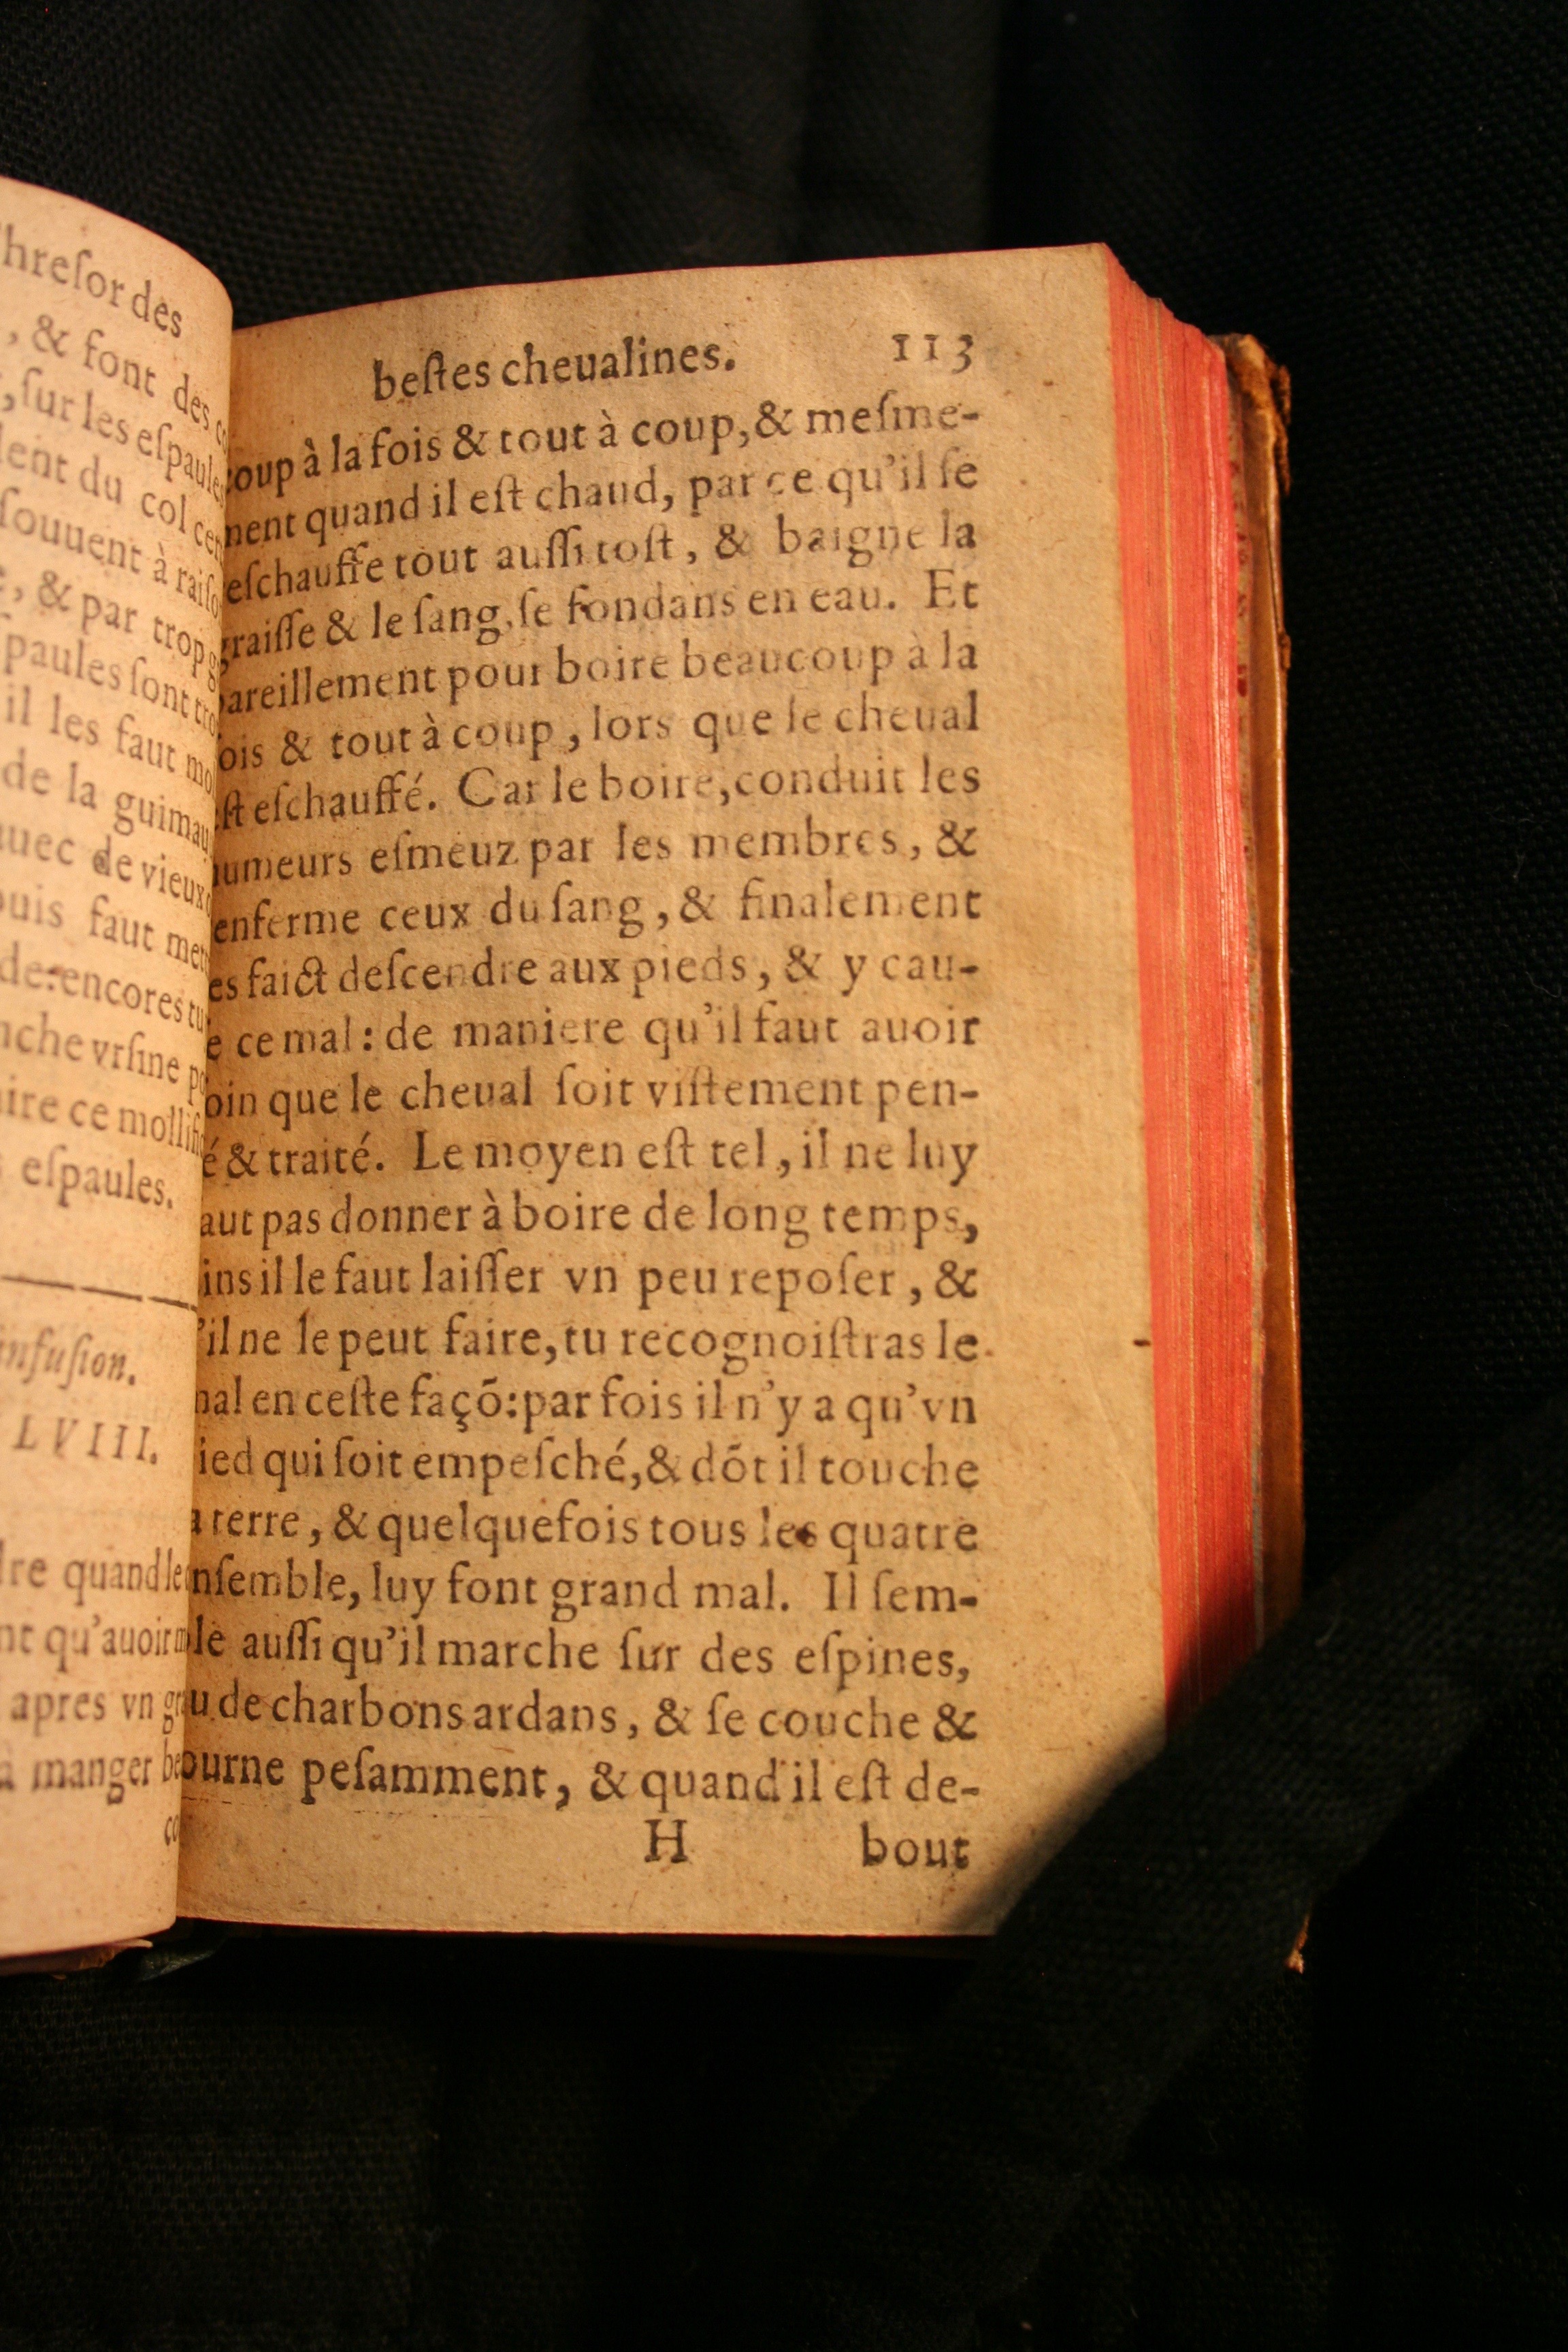 hreſor des
, & font des
, ſur les eſpaules
lent du col
ſouuent à raiſo
, & par trop
paules ſont tro
il les faut mo
de la guimau
uec de vieux
puis faut met
de: encores tu
nche vrſine
ire ce mollifi
eſpaules.
infuſion.
LVIII.
dre quand le
nt qu'auoir
apres vn gr
à manger be
co
beſtes cheualines. 113
coup à la fois & tout à coup, & meſme-
ment quand il eſt chaud, par ce qu'il ſe
eſchauffe tout auſſi toſt, & baigne la
graiſſe & le ſang, ſe fondans en eau. Et
pareillement pour boire beaucoup à la
ois & tout à coup, lors que le cheual
eſt eſchauffé. Car le boire, conduit les
humeurs eſmeuz par les membres, &
enferme ceux du ſang, & finalement
es faict deſcendre aux pieds, & y cau-
e ce mal: de maniere qu'il faut auoir
oin que le cheual ſoit viſtement pen-
é & traité. Le moyen eſt tel, il ne luy
aut pas donner à boire de long temps,
ins il le faut laiſſer vn peu repoſer, &
'il ne le peut faire, tu recognoiſtras le
mal en ceſte façõ: par fois il n'y a qu'vn
ied qui ſoit empeſché, & dõt il touche
a terre, & quelquefois tous les quatre
nſemble, luy font grand mal. Il ſem-
ble auſſi qu'il marche ſur des eſpines,
u de charbons ardans, & ſe couche &
ourne peſamment, & quand il eſt de-
H bout